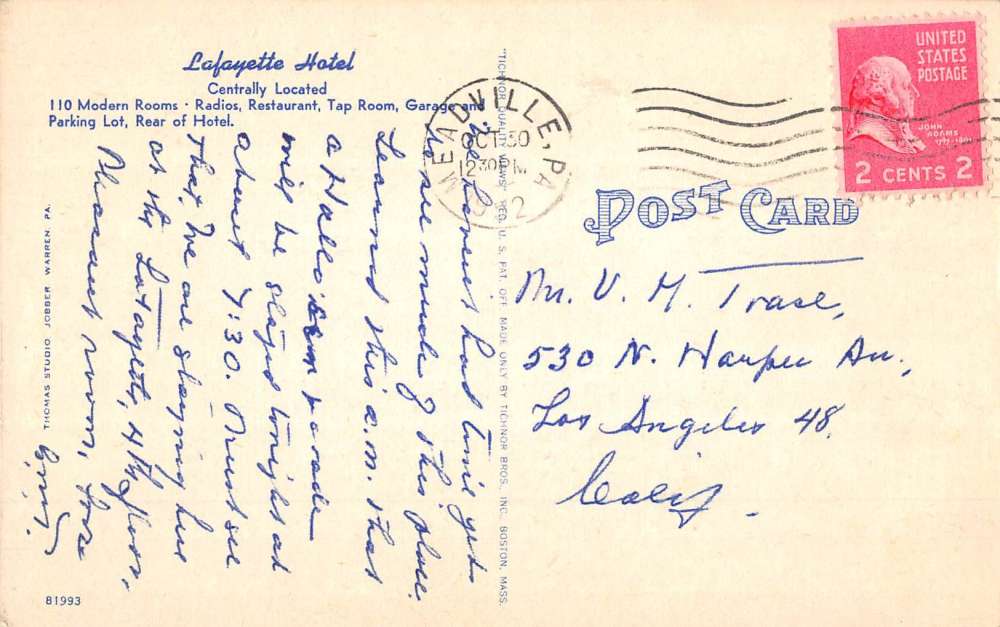 Lafayette Hotel
Centrally Located
110 Modern Rooms · Radios, Restaurant, Tap Room, Garage and
Parking Lot, Rear of Hotel.
We haven't had time yet to
see much of this place.
Learned this a.m. that
a Hallo'een parade
will be staged tonight at
about 7:30. Must see
that. We are staying here
at the Lafayette, 4th floor.
Pleasant room,
THOMAS STUDIO, JOBBER WARREN, PA.
81993
"TICHNOR QUALITY VIEWS," REG. U. S. PAT. OFF. MADE ONLY BY TICHNOR BROS., INC. BOSTON, MASS.
MEADVILLE, PA
OCT 30
12 30 PM
UNITED
STATES
POSTAGE
JOHN
ADAMS
2 CENTS 2
POST CARD
Mr. V. M. Trace,
530 N. Harper Av.,
Los Angeles 48.
Calif.